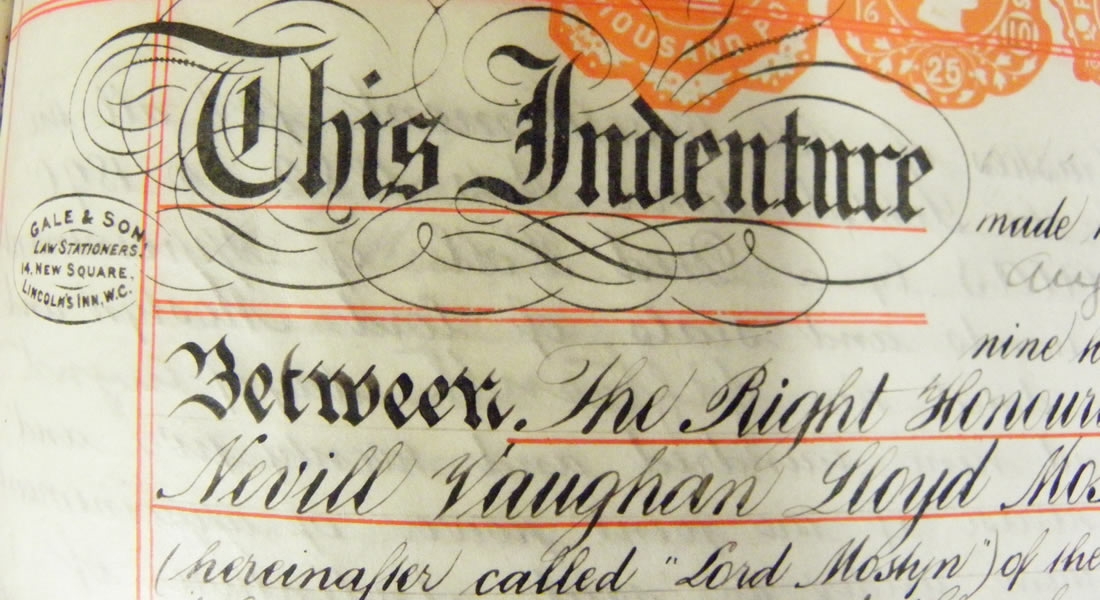 THOUSAND PO
16
25
10
This Indenture
made
Aug
GALE & SON
LAW STATIONERS.
14, NEW SQUARE.
LINCOLN'S INN, W.C.
nine h
Between. The Right Honour
Nevill Vaughan Lloyd Mos
(hereinafter called "Lord Mostyn") of the